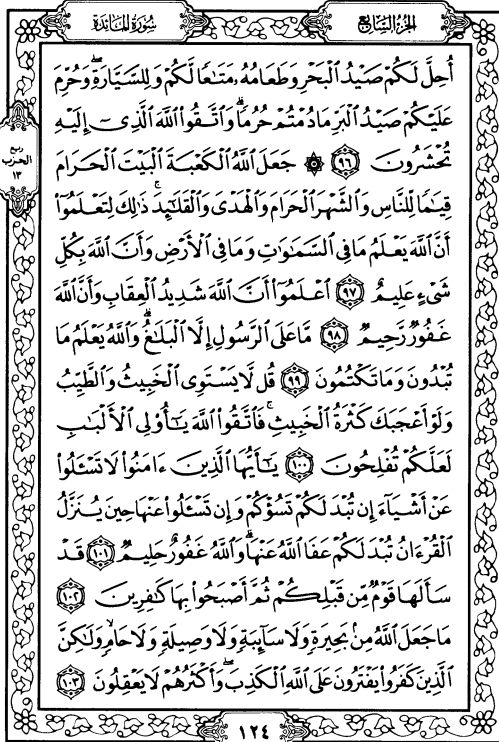 سُورَةُ المَائِدَةِ
الجُزْءُ السَّابِعُ
أُحِلَّ لَكُمْ صَيْدُ ٱلْبَحْرِ وَطَعَامُهُۥ مَتَٰعًا لَّكُمْ وَلِلسَّيَّارَةِۖ وَحُرِّمَ
عَلَيْكُمْ صَيْدُ ٱلْبَرِّ مَا دُمْتُمْ حُرُمًاۗ وَٱتَّقُوا۟ ٱللَّهَ ٱلَّذِىٓ إِلَيْهِ
تُحْشَرُونَ ٩٦ ۞ جَعَلَ ٱللَّهُ ٱلْكَعْبَةَ ٱلْبَيْتَ ٱلْحَرَامَ
قِيَٰمًا لِّلنَّاسِ وَٱلشَّهْرَ ٱلْحَرَامَ وَٱلْهَدْىَ وَٱلْقَلَٰٓئِدَۚ ذَٰلِكَ لِتَعْلَمُوٓا۟
أَنَّ ٱللَّهَ يَعْلَمُ مَا فِى ٱلسَّمَٰوَٰتِ وَمَا فِى ٱلْأَرْضِ وَأَنَّ ٱللَّهَ بِكُلِّ
شَىْءٍ عَلِيمٌ ٩٧ ٱعْلَمُوٓا۟ أَنَّ ٱللَّهَ شَدِيدُ ٱلْعِقَابِ وَأَنَّ ٱللَّهَ
غَفُورٌ رَّحِيمٌ ٩٨ مَّا عَلَى ٱلرَّسُولِ إِلَّا ٱلْبَلَٰغُۗ وَٱللَّهُ يَعْلَمُ مَا
تُبْدُونَ وَمَا تَكْتُمُونَ ٩٩ قُل لَّا يَسْتَوِى ٱلْخَبِيثُ وَٱلطَّيِّبُ
وَلَوْ أَعْجَبَكَ كَثْرَةُ ٱلْخَبِيثِۚ فَٱتَّقُوا۟ ٱللَّهَ يَٰٓأُو۟لِى ٱلْأَلْبَٰبِ
لَعَلَّكُمْ تُفْلِحُونَ ١٠٠ يَٰٓأَيُّهَا ٱلَّذِينَ ءَامَنُوا۟ لَا تَسْـَٔلُوا۟
عَنْ أَشْيَآءَ إِن تُبْدَ لَكُمْ تَسُؤْكُمْ وَإِن تَسْـَٔلُوا۟ عَنْهَا حِينَ يُنَزَّلُ
ٱلْقُرْءَانُ تُبْدَ لَكُمْ عَفَا ٱللَّهُ عَنْهَاۗ وَٱللَّهُ غَفُورٌ حَلِيمٌ ١٠١ قَدْ
سَأَلَهَا قَوْمٌ مِّن قَبْلِكُمْ ثُمَّ أَصْبَحُوا۟ بِهَا كَٰفِرِينَ ١٠٢
مَا جَعَلَ ٱللَّهُ مِنۢ بَحِيرَةٍ وَلَا سَآئِبَةٍ وَلَا وَصِيلَةٍ وَلَا حَامٍۙ وَلَٰكِنَّ
ٱلَّذِينَ كَفَرُوا۟ يَفْتَرُونَ عَلَى ٱللَّهِ ٱلْكَذِبَۖ وَأَكْثَرُهُمْ لَا يَعْقِلُونَ ١٠٣
ربع
الحزب
١٣
١٢٤